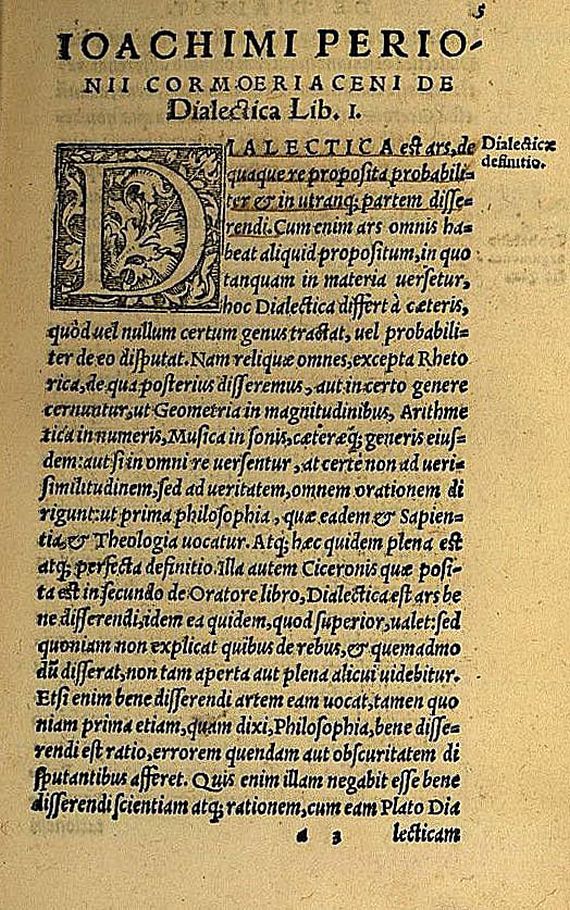 5
IOACHIMI PERIO-
NII CORMOERIACENI DE
Dialectica Lib. I.
DIALECTICA est ars, de
quaque re proposita probabili=
ter & in utranq; partem disse=
rendi. Cum enim ars omnis ha=
beat aliquid propositum, in quo
tanquam in materia uersetur,
hoc Dialectica differt à cæteris,
quòd uel nullum certum genus tractat, uel probabili=
ter de eo disputat. Nam reliquæ omnes, excepta Rheto
rica, de qua posterius disseremus, aut in certo genere
cernuntur, ut Geometria in magnitudinibus, Arithme
tica in numeris, Musica in sonis, cæteræq; generis eius=
dem: aut si in omni re uersentur, at certe non ad ueri=
similitudinem, sed ad ueritatem, omnem orationem di
rigunt: ut prima philosophia, quæ eadem & Sapien=
tia, & Theologia uocatur. Atq; hæc quidem plena est
atq; perfecta definitio. Illa autem Ciceronis quæ posi=
ta est in secundo de Oratore libro, Dialectica est ars be
ne disserendi, idem ea quidem, quod superior, ualet: sed
quoniam non explicat quibus de rebus, & quemadmo
dū disserat, non tam aperta aut plena alicui uidebitur.
Etsi enim bene disserendi artem eam uocat, tamen quo
niam prima etiam, quam dixi, Philosophia, bene disse=
rendi est ratio, errorem quendam aut obscuritatem di
sputantibus afferet. Quis enim illam negabit esse bene
disserendi scientiam atq; rationem, cum eam Plato Dia
a 3 lecticam
Dialecticæ
definitio.